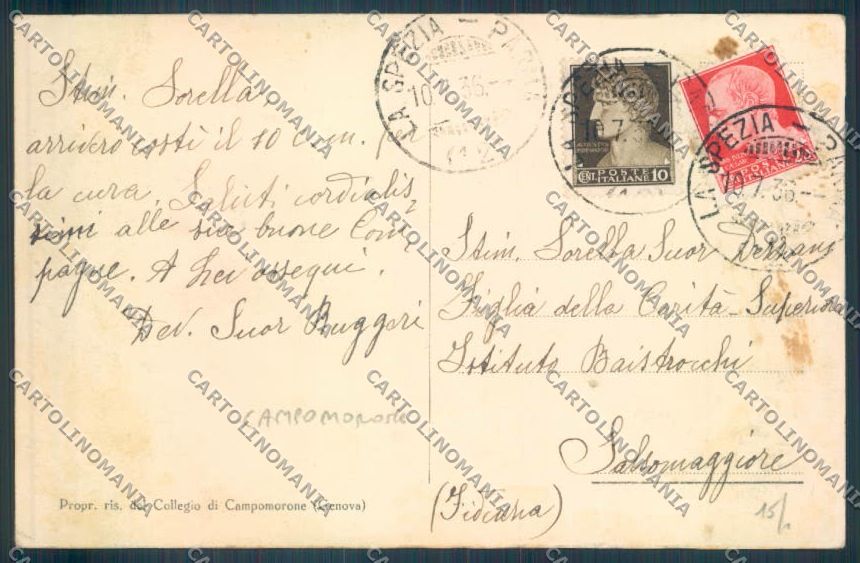 Stim. Sorella
arriverò costì il 10 c.m. per
la cura. Saluti cordialis-
simi alle sue buone Com
pagne. A Lei ossequi.
Dev. Suor Ruggeri
CAMPOMORONE
Propr. ris. del Collegio di Campomorone (Genova)
LA SPEZIA - PARMA
10.7.36.--
CENT POSTE ITALIANE 10
LA SPEZIA - PARMA
10.7.36.--
POSTE ITALIANE
Stim. Sorella Suor
Figlia della Carità - Superiora
Istituto Baistrocchi
Salsomaggiore
(Fidenza)
15/
CARTOLINOMANIA